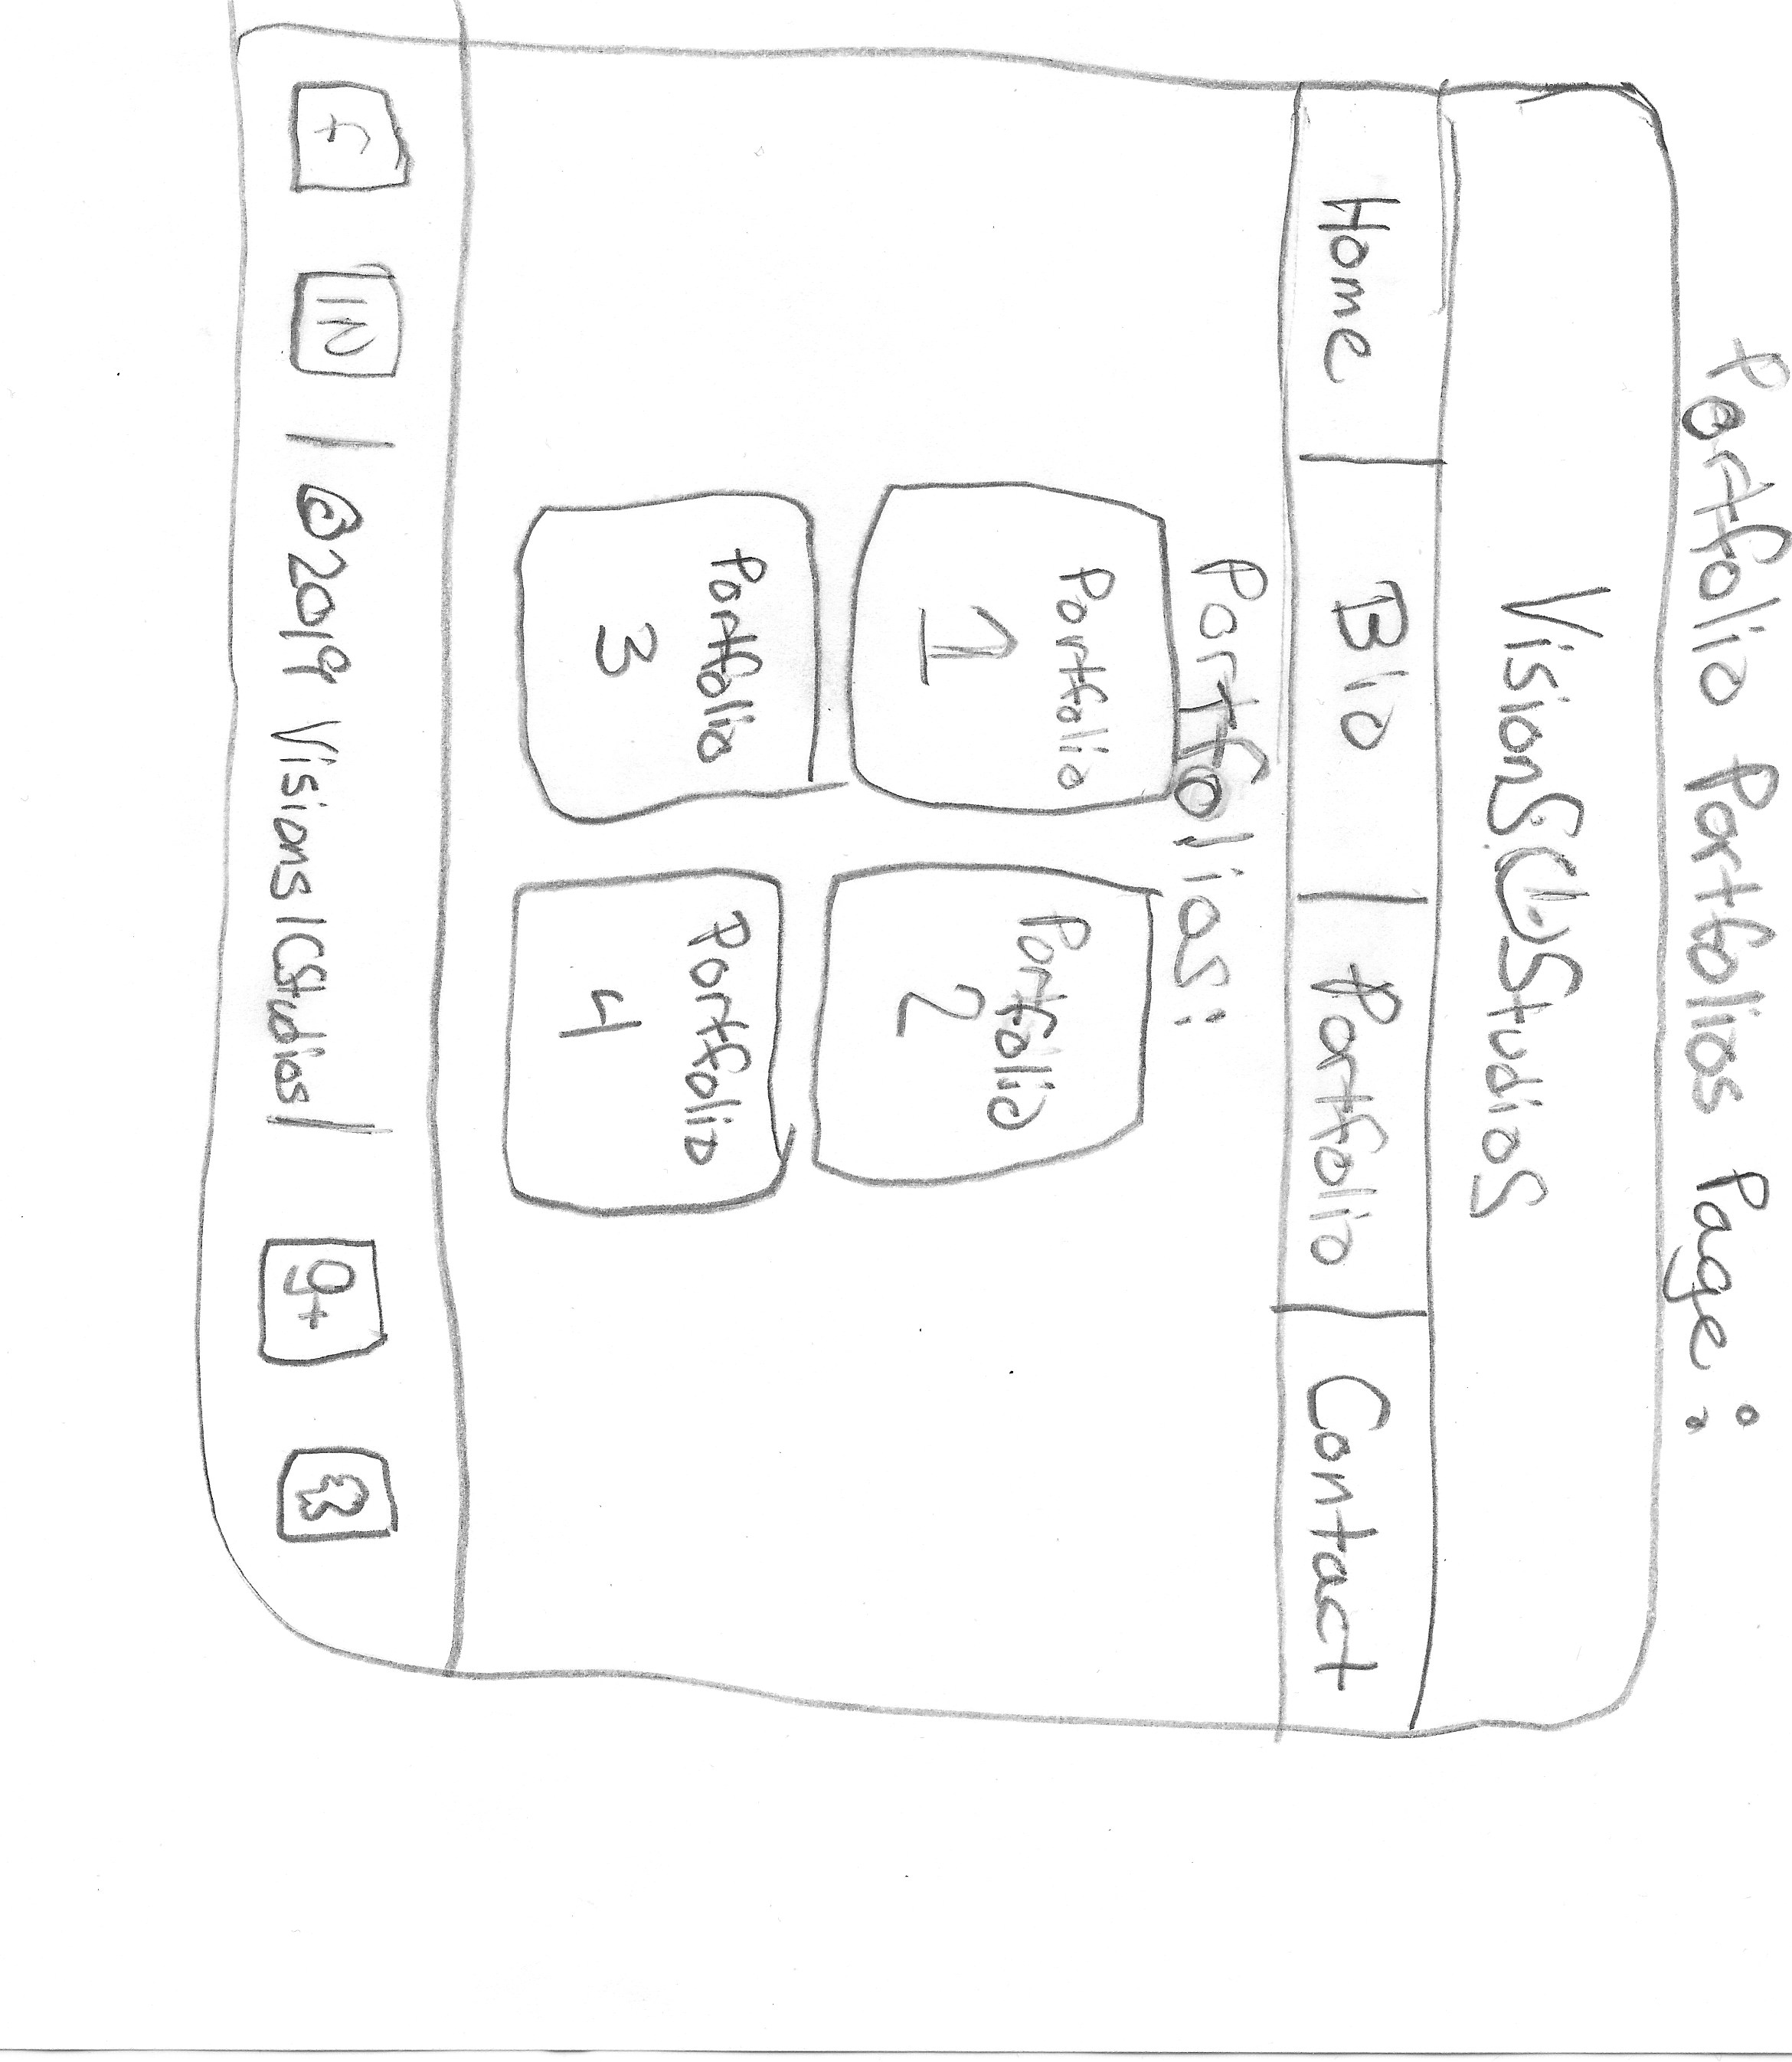 Portfolio Portfolios Page:
Visions Studios
Home | Bio | Portfolio | Contact
Portfolios:
Portfolio
1
Portfolio
2
Portfolio
3
Portfolio
4
f IN | ©2019 Visions ICStudios | g+